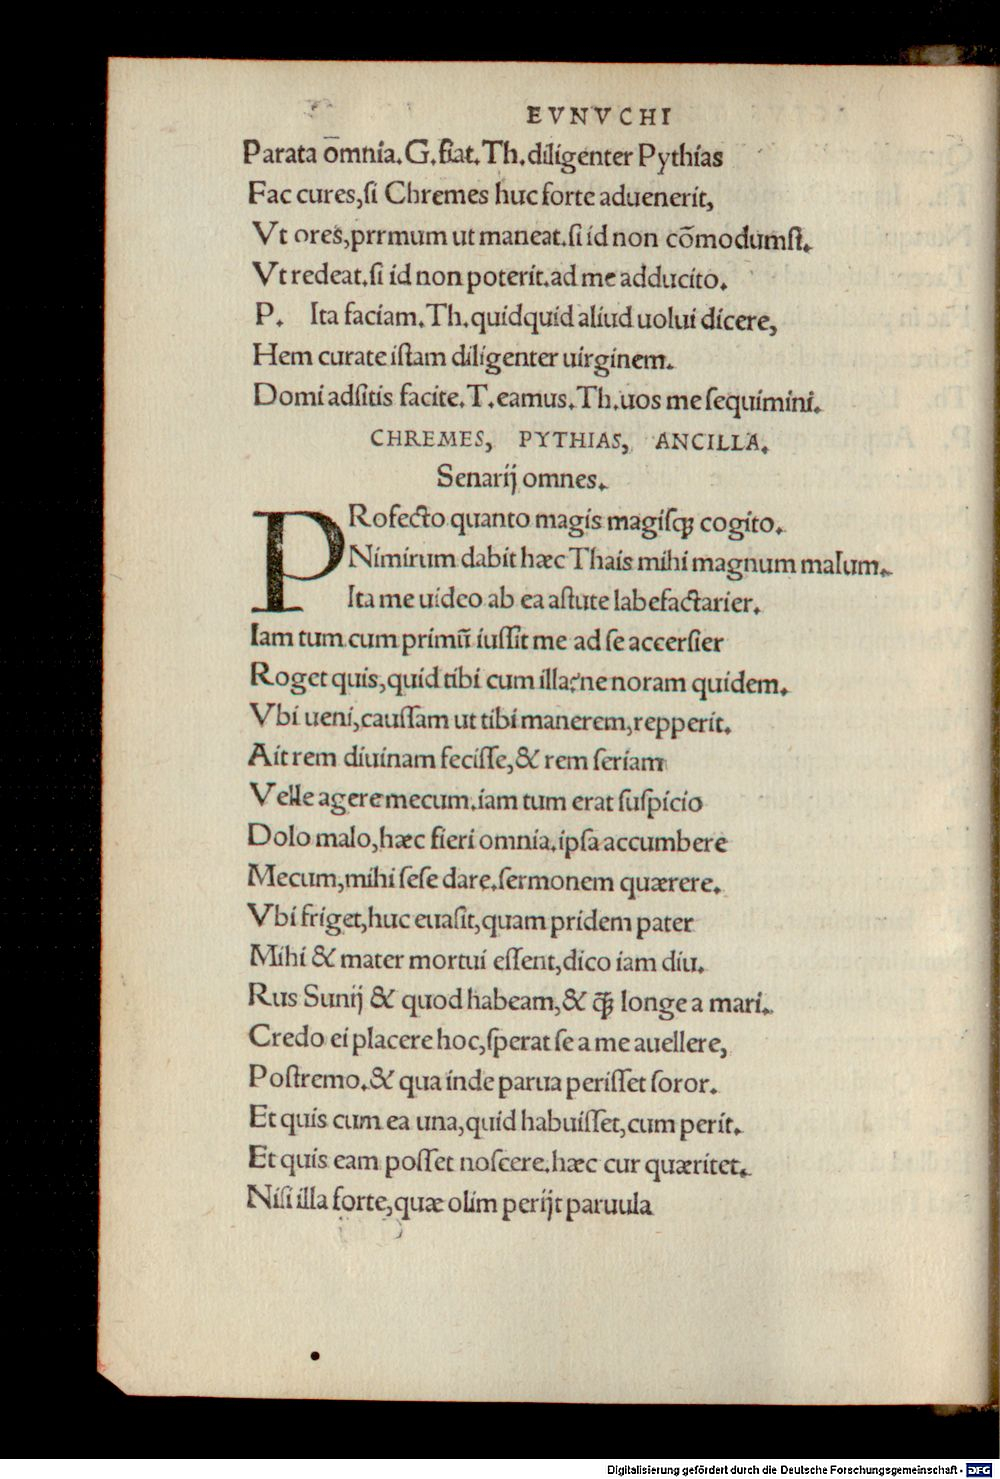 EVNVCHI
Parata om̄nia.G.fiat.Th.diligenter Pythias
Fac cures,ſi Chremes huc forte aduenerit,
Vt ores,prrmum ut maneat.ſi id non cōmodumſt.
Vt redeat.ſi id non poterit.ad me adducito.
P. Ita faciam.Th.quidquid aliud uolui dicere,
Hem curate iſtam diligenter uirginem.
Domi adſitis facite.T.eamus.Th.uos me ſequimini.
CHREMES, PYTHIAS, ANCILLA.
Senarij omnes.
PRofecto quanto magis magiſqꝫ cogito.
Nimirum dabit hæc Thais mihi magnum malum.
Ita me uideo ab ea aſtute labefactarier.
Iam tum cum primū iuſſit me ad ſe accerſier
Roget quis,quid tibi cum illa?ne noram quidem.
Vbi ueni,cauſſam ut tibi manerem,repperit.
Ait rem diuinam feciſſe,& rem ſeriam
Velle agere mecum.iam tum erat ſuſpicio
Dolo malo,hæc fieri omnia.ipſa accumbere
Mecum,mihi ſeſe dare.ſermonem quærere.
Vbi friget,huc euaſit,quam pridem pater
Mihi & mater mortui eſſent,dico iam diu.
Rus Sunij & quod habeam,& q̄ꝫ longe a mari.
Credo ei placere hoc,ſperat ſe a me auellere,
Poſtremo.& qua inde parua periſſet ſoror.
Et quis cum ea una,quid habuiſſet,cum perit.
Et quis eam poſſet noſcere.hæc cur quæritet.
Niſi illa forte,quæ olim perijt paruula
Digitalisierung gefördert durch die Deutsche Forschungsgemeinschaft - DFG